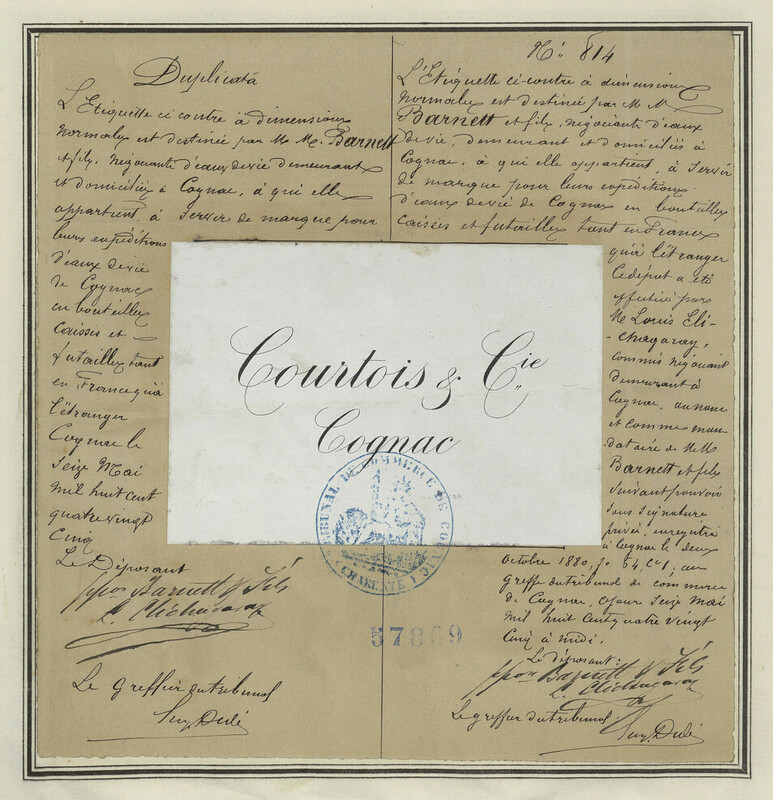 Duplicata
L'Etiquette ci contre à dimensions
normales est destinée par M M. Barnett
et fils, négociants d'eaux de vie demeurant
et domiciliés à Cognac, à qui elle
appartient, à servir de marque pour
leurs expéditions
d'eaux de vie
de Cognac
en bouteilles
Caisses et
futailles tant
en France qu'à
l'étranger
Cognac le
Seize Mai
Mil huit cent
quatre vingt
Cinq
Le Déposant
ppon Barnett & Fils
Le Greffier du tribunal
Eug. Dulé
No. 814
L'Etiquette ci-contre à dimensions
normales est destinée par M M
Barnett et fils, négociants d'eaux
de vie, demeurant et domiciliés à
Cognac, à qui elle appartient, à servir
de marque pour leurs expéditions
d'eaux de vie de Cognac en bouteilles
caisses et futailles tant en France
qu'à l'étranger
Ce dépôt a été
effectué par
M Louis Eli-
-chagaray,
commis négociant
demeurant à
Cognac, au nom
et comme man
dataire de M M
Barnett et fils
suivant pouvoir
sous signature
privée, enregistré
à Cognac le deux
Octobre 1880, fo 54, Ce 1, au
greffe du tribunal de commerce
de Cognac, ce jour seize Mai
Mil huit cent quatre vingt
Cinq à midi.
Le déposant:
ppon Barnett & Fils
Le greffier du tribunal
Eug. Dulé
Courtois & Cie
Cognac
TRIBUNAL DE COMMERCE DE COGNAC
(CHARENTE)
57869